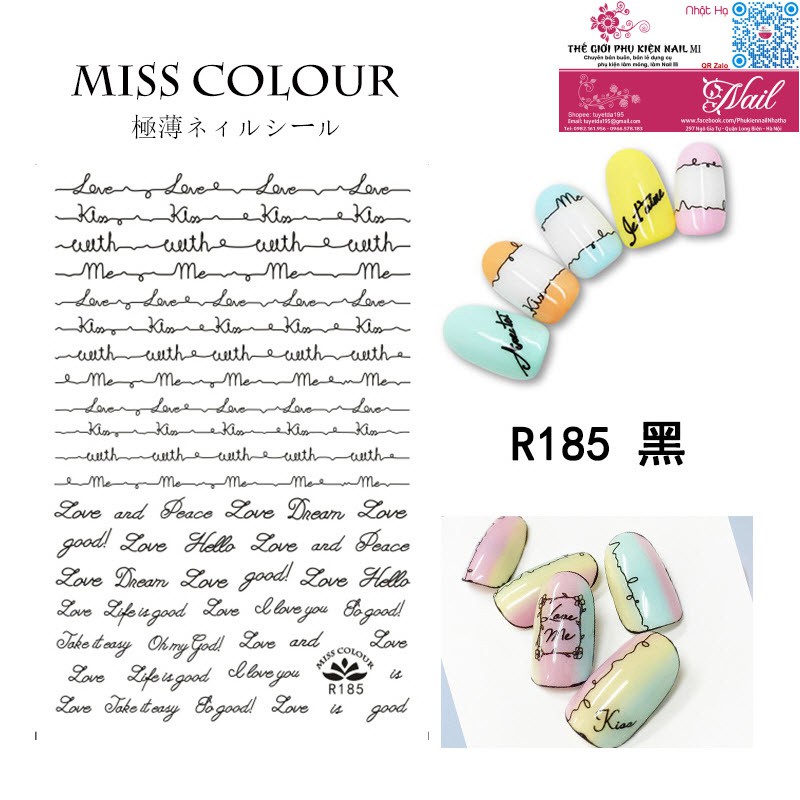 MISS COLOUR
極薄ネィルシール
Nhật Hạ
THẾ GIỚI PHỤ KIỆN NAIL MI
Chuyên bán buôn, bán lẻ dụng cụ
phụ kiện làm móng, làm Nail Mi
QR Zalo
Nail
Shopee: tuyetda195
Email: tuyetda195@gmail.com
Tel: 0982.161.956 - 0966.578.183
www.facebook.com/PhukiennailNhatha
297 Ngô Gia Tự - Quận Long Biên - Hà Nội
Love Love Love Love
Kiss Kiss Kiss Kiss
with with with with
Me Me Me Me
Love Love Love Love Love
Kiss Kiss Kiss Kiss Kiss
with with with with with
Me Me Me Me Me
Love Love Love Love Love
Kiss Kiss Kiss Kiss Kiss
with with with with with
Me Me Me Me Me
Love and Peace Love Dream Love
good! Love Hello Love and Peace
Love Dream Love good! Love Hello
Love Life is good Love I love you So good!
Take it easy Oh my God! Love and Love
Love Life is good I love you is
Love Take it easy So good! Love is good
MISS COLOUR
R185
Me
Je t'aime
Kiss
R185 黑
Love
Me
Kiss